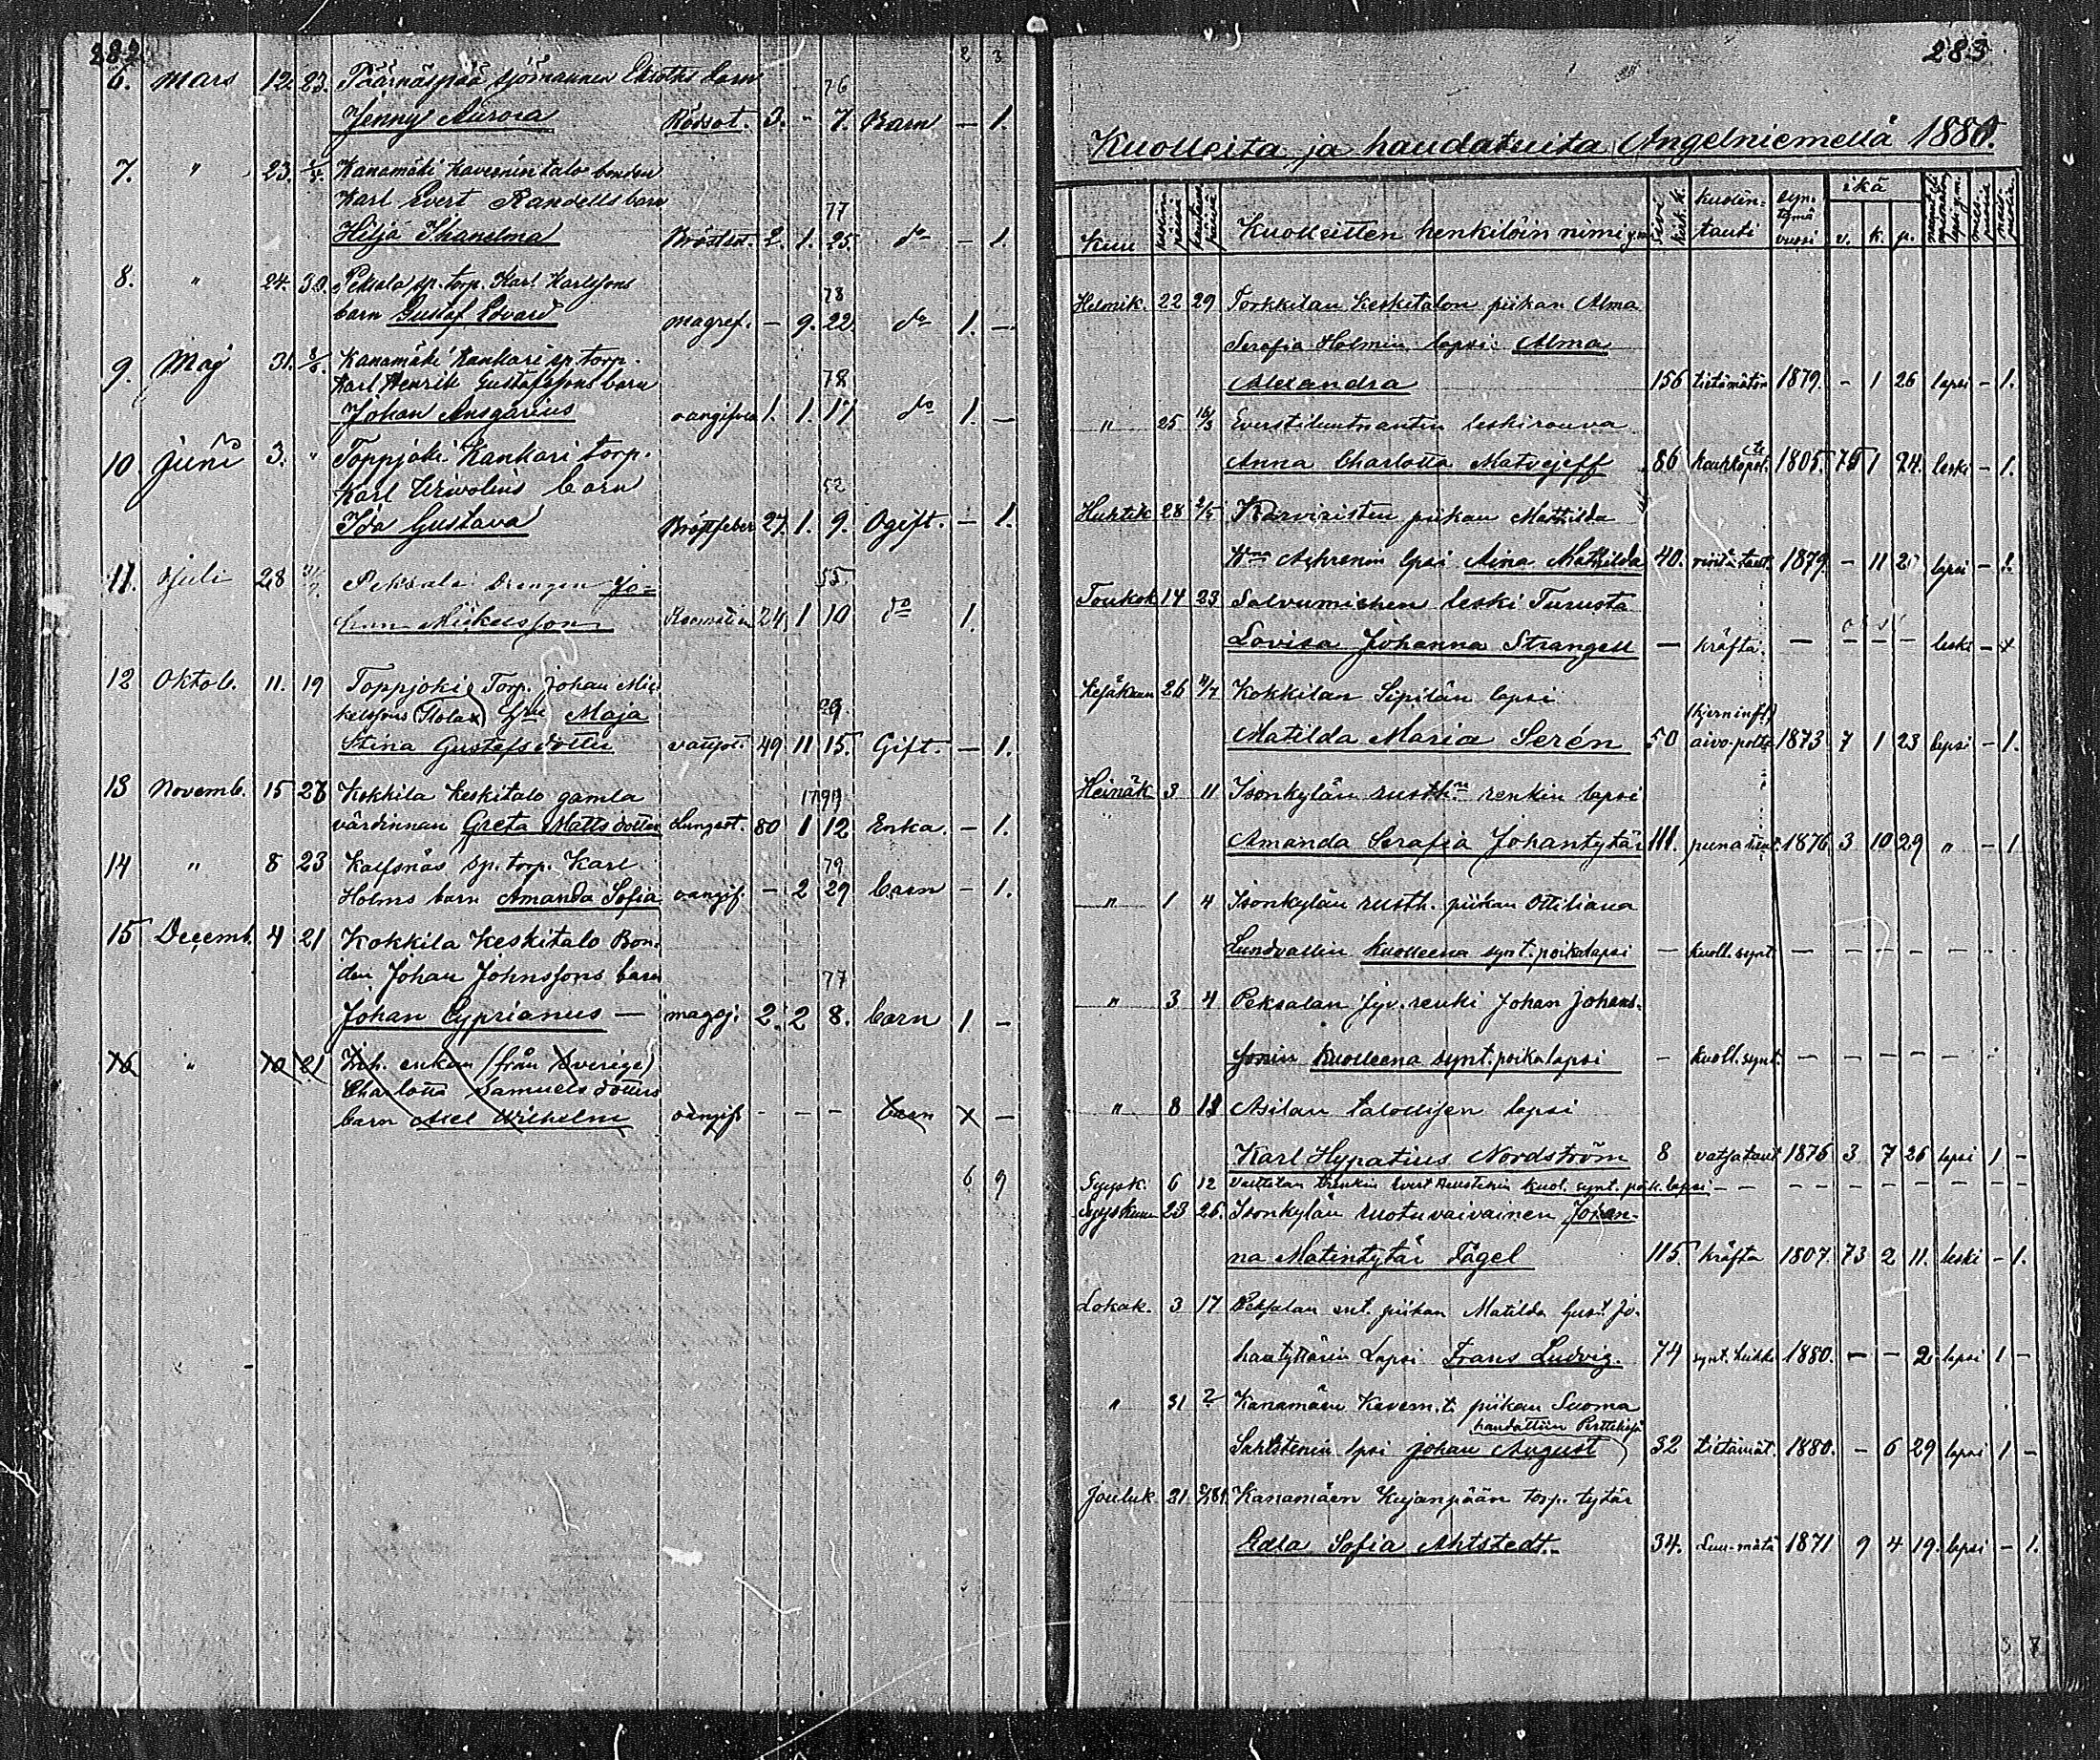 282.
2 3
6. Mars 12. 23. Päärnäspää sjömannen barn 76
Jenny Aurora Rödsot. 3. - 7. Barn - 1.
7. " 23. Kanamäki talo bonden
Karl Evert Randells barn 77
Hilja Bröstsot. 2. 1. 25. do - 1.
8. " 24. 30. Peksala sp. torp. Karl Karlssons 78
barn Gustaf Edvard magref. - 9. 22. do 1. -
9. Maj 31. Kanamäki Kankari sp. torp.
Karl Henrik Gustafssons barn 78
Johan Ansgarius oangifven 1. 1. 17 do 1. -
10 Juni 3. " Toppjoki Kankari torp.
Karl barn 52
Ida Gustava Bröstfeber 27. 1. 9. Ogift. - 1.
11. Juli 28 Peksala Drengen Jo- 55.
han Mickelsson 24 1 10 do 1.
12 Oktob. 11. 19 Toppjoki Torp. Johan Mic-
kelssons Maja 29.
Stina Gustafsdotter vattsot. 49 11 15. Gift. - 1.
13 Novemb. 15 28 Kokkila Keskitalo gamla 1799
värdinnan Greta Mattsdotter Lungsot. 80 1 12 Enka. - 1.
14 " 8 23 Kalfsnäs sp. torp. Karl 79
Holms barn Amanda Sofia oangif. - 2 29 barn - 1.
15 Decemb. 4 21 Kokkila Keskitalo Bon-
den Johan Johnssons barn 77
Johan Cyprianus — magsj. 2. 2 8. barn 1 -
16 " 10 21 Inh. enkan (från Sverige)
Charlotta Samuelsdotters
barn Axel Wilhelm oangif. - - - barn x -
6 9
283.
Kuolleita ja haudatuita Angelniemellä 1880.
Kuu Kuolleitten henkilöin nimi kuolin-tauti syn-tymä vuosi ikä v. k. p.
Helmik. 22 29 Torkkilan Keskitalon piikan Alma
Serafia Holmin lapsi Alma
Alexandra 156 tietämätön 1879. - 1 26 lapsi - 1.
" 25 16/3 Everstiluutnantin leskirouva
Anna Charlotta Matvejeff 86 1805. 75 1 24. leski - 1.
Huhtik 28 2/5 Karviaisten piikan Mathilda
lpsi Aina Mathilda 40. rinta taut. 1879. - 11 2 lapsi - 1.
Toukok 14 23 Salvumiehen leski Turusta
Lovisa Johanna Strangell — kräfta. — - - - leski - x
Kesäkuu 26 4/7 Kokkilan Sipilän lapsi
(hjerninfl.)
Matilda Maria Serén 50 aivo-poltto 1873 7 1 23 lapsi - 1.
Heinäk 3 11 Isonkylän rusth. renkin lapsi
Amanda Serafia Johantytär 111. punataut. 1876 3 10 29 " - 1
" 1 4 Isonkylän rusth. piikan Ottiliana
Lundvallin kuolleena synt. poikalapsi — kuoll. synt. — - - - - - -
" 3 4 Peksalan renki Johan Johans-
sonin kuolleena synt. poikalapsi - kuoll. synt. - - - - - -
" 8 11 Asilan talollisen lapsi
Karl Hypatius Nordström 8 vatsataut 1876 3 7 26 lapsi 1 -
Syysk. 6 12 renkin Evert kuol. synt. poik. lapsi - - - - - - -
Syyskuu 23 26. Isonkylän ruotuvaivainen Johan-
na Matintytär Fågel 115. kräfta 1807. 73 2 11. leski - 1.
Lokak. 3 17 Peksalan ent. piikan Matilda Gust. Jo-
hantyttärin Lapsi Frans Ludvig. 74 synt. heikko 1880. - - 2 lapsi 1 -
" 31 2 Kanamäen Kavern. t. piikan Suoma
haudattiin Perttelissä
Sahlstenin lpsi Johan August 32 tietämät. 1880. - 6 29 lapsi 1 -
Jouluk 21 Kanamäen Kujanpään torp. tytär
Edla Sofia Ahlstedt. 34. Luu-mätä 1871 9 4 19. lapsi - 1.